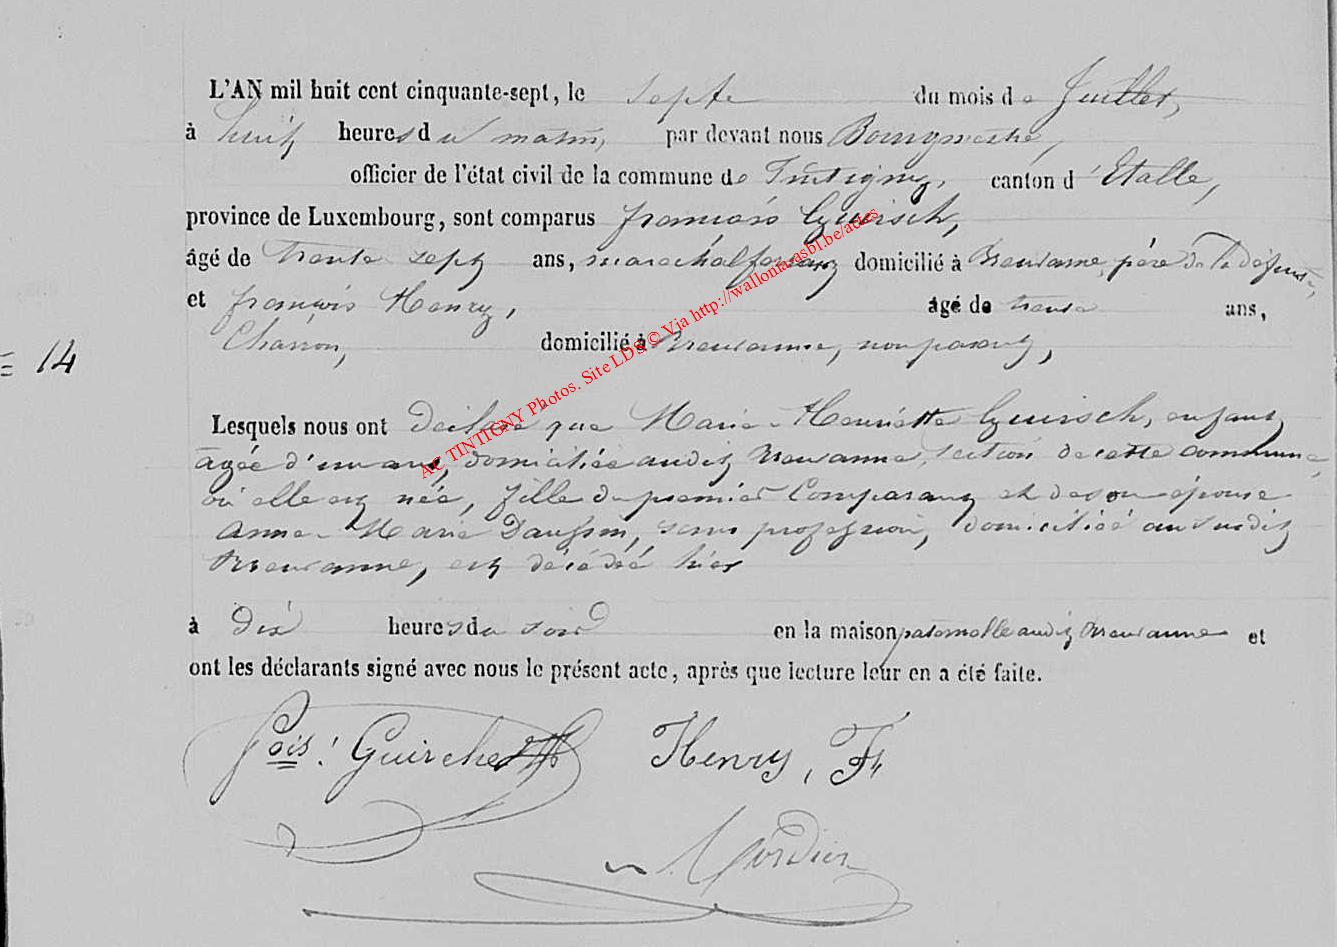 L'AN mil huit cent cinquante-sept, le sept du mois de Juillet,
à huit heures du matin, par devant nous Bourgmestre,
officier de l'état civil de la commune de Tintigny, canton d'Etalle,
province de Luxembourg, sont comparus françois Guirsch,
âgé de trente sept ans, marechal ferrant domicilié à Breuvanne, père de la défunte,
et françois Henry, âgé de trente ans,
Charron, domicilié à Breuvanne, non parent,
= 14
Lesquels nous ont déclaré que Marie-Henriette Guirsch, enfant
agée d'un an, domiciliée audit Breuvanne, section de cette commune,
où elle est née, fille du premier Comparant et de son épouse
Anne-Marie, sans profession, domiciliée au susdit
Breuvanne, est décédé hier
à Dix heures du soir en la maison paternelle audit Breuvanne et
ont les déclarants signé avec nous le présent acte, après que lecture leur en a été faite.
fois! Guirche Henry, F
AC TINTIGNY Photos. Site LDS © Via http://wallonia-asbl.be/actes